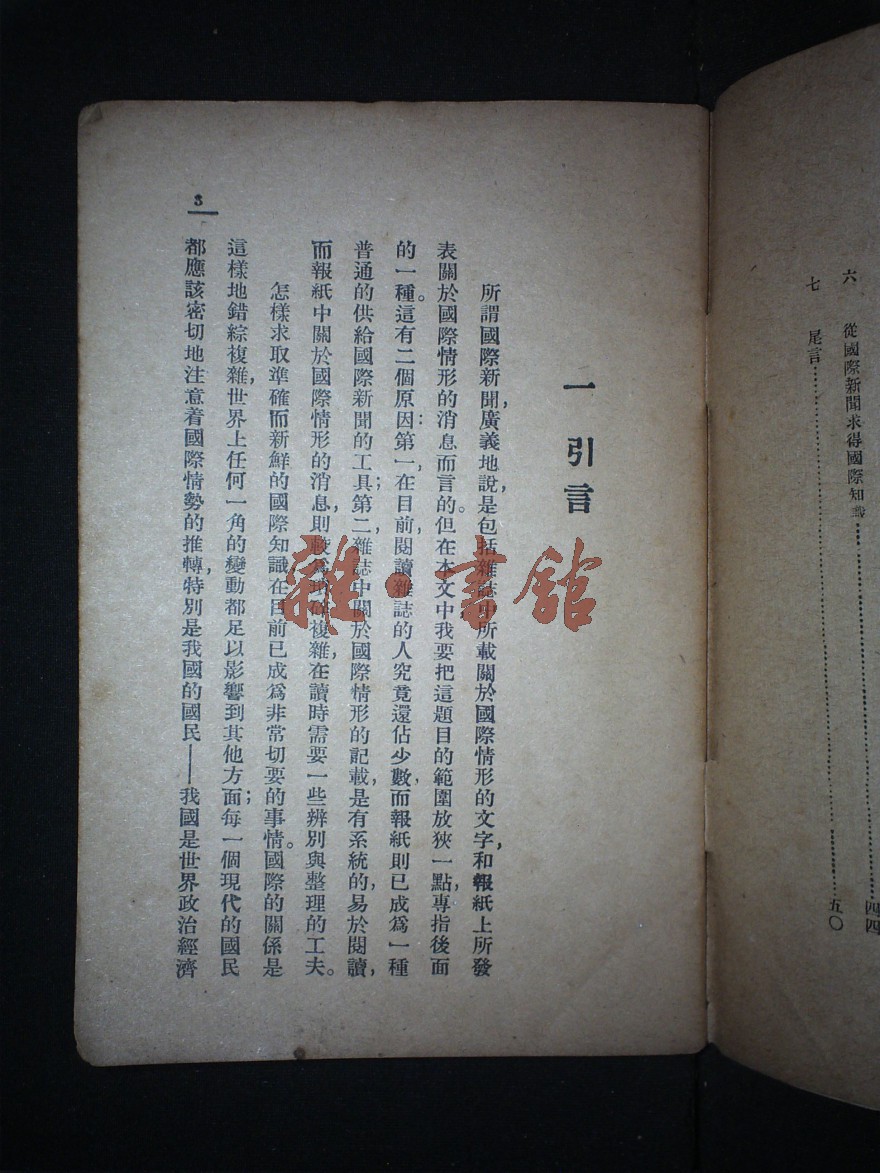 六 從國際新聞求得國際知識……四四
七 尾言……五〇
一 引言
所謂國際新聞，廣義地說，是包括雜誌中所載關於國際情形的文字，和報紙上所發
表關於國際情形的消息而言的。但在本文中我要把這題目的範圍放狹一點，專指後面
的一種。這有二個原因：第一，在目前，閱讀雜誌的人究竟還佔少數，而報紙則已成爲一種
普通的供給國際新聞的工具；第二，雜誌中關於國際情形的記載，是有系統的，易於閱讀，
而報紙中關於國際情形的消息，則較爲複雜，在讀時需要一些辨別與整理的工夫。
怎樣求取準確而新鮮的國際知識，在目前已成爲非常切要的事情。國際的關係是
這樣地錯綜複雜，世界上任何一角的變動都足以影響到其他方面；每一個現代的國民
都應該密切地注意着國際情勢的推轉，特別是我國的國民——我國是世界政治經濟
3
雜·書館